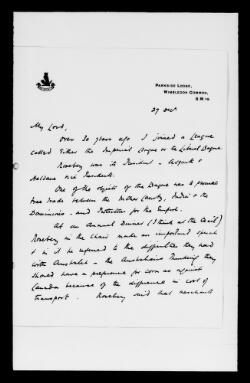 PARKSIDE LODGE,
WIMBLEDON COMMON,
S.W.19.
29 Dec
My Lord,
Over 30 years ago I joined a League
called Either the Imperial League or the Liberal League
Rosebery was its President - Asquith &
Haldane vice Presidents.
One of the objects of the League was to promote
Free Trade between the Mother Country, India & the
Dominions - and Protection for the Empire.
At an Annual Dinner (I think at the Cecil)
Rosebery in the Chair made an important speech
& in it he referred to the difficulties they had
with Australia - the Australians thinking they
should have a preference for corn as against
Canada because of the difference in cost of
transport. Rosebery said that